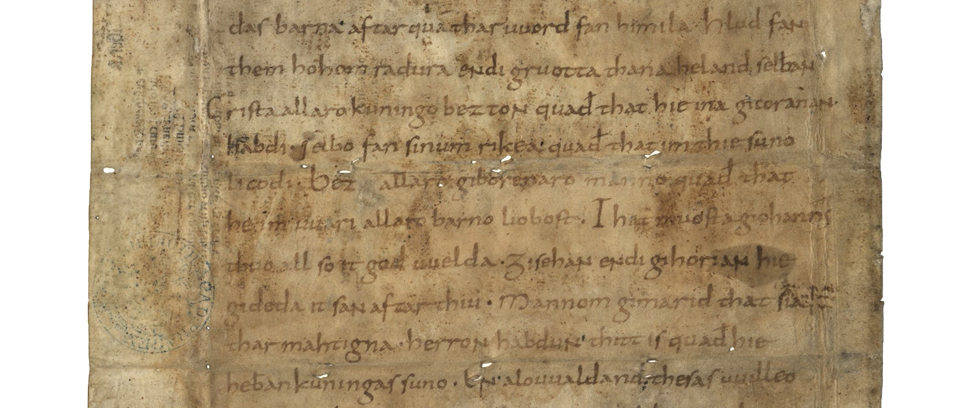 das barna· aftar quā thar uuord fan himila· hlud fan
them hohom radura endi gruotta thana heland, selban
Crista allaro kuningo bezton quađ that hie ina gicoranan·
habdi· selbo fan sinum rikea· quađ that im thie suno
licodi· Bezt allaro giboranaro manno quađ that
he im uuari allaro barno liobost· That muosta giohannes
thuo all so it god uuelda· Gisehan endi gihorian hie
gideda it san aftar thiu· Mannom gimarid that sia
thar mahtigna· herron habdun· thitt is quađ hie
heban kuningas suno· En alouualdand, thesas uuilleo